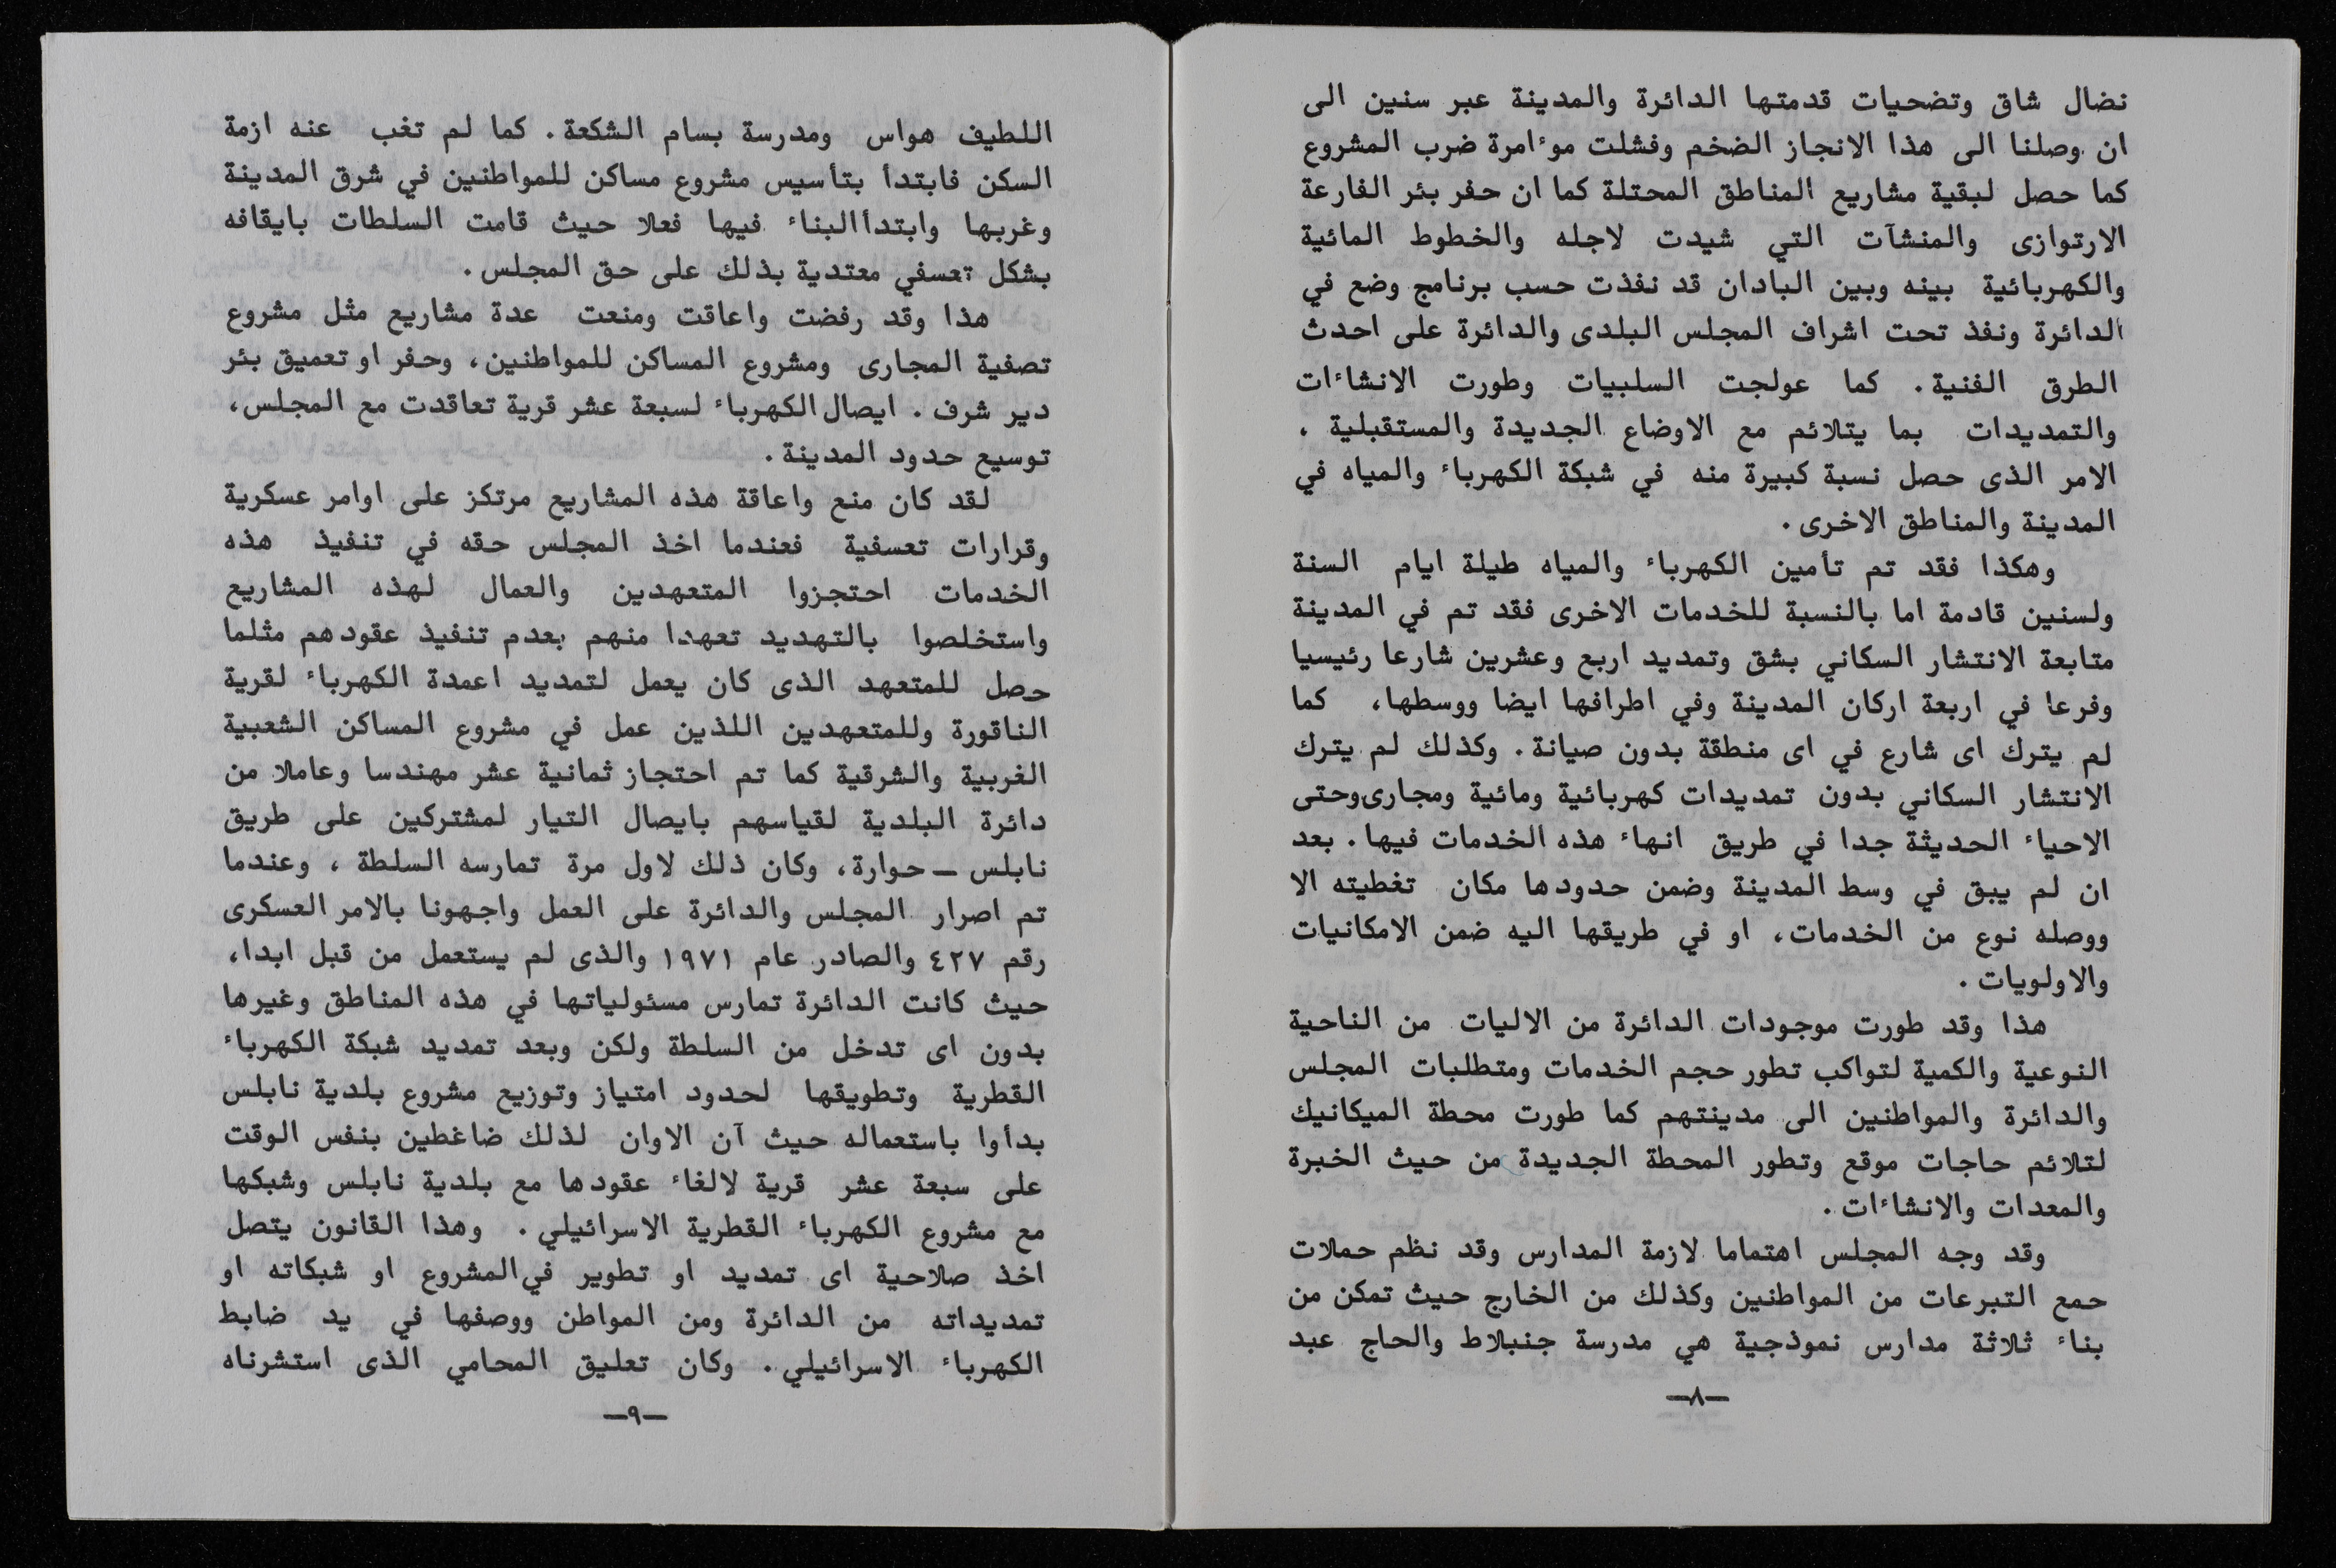 نضال شاق وتضحيات قدمتها الدائرة والمدينة عبر سنين الى
ان وصلنا الى هذا الانجاز الضخم وفشلت موءامرة ضرب المشروع
كما حصل لبقية مشاريع المناطق المحتلة كما ان حفر بئر الفارعة
الارتوازى والمنشآت التي شيدت لاجله والخطوط المائية
والكهربائية بينه وبين البادان قد نفذت حسب برنامج وضع في
الدائرة ونفذ تحت اشراف المجلس البلدى والدائرة على احدث
الطرق الفنية. كما عولجت السلبيات وطورت الانشاءات
والتمديدات بما يتلائم مع الاوضاع الجديدة والمستقبلية .
الامر الذى حصل نسبة كبيرة منه في شبكة الكهرباء والمياه في
المدينة والمناطق الاخرى.
وهكذا فقد تم تأمين الكهرباء والمياه طيلة ايام السنة
ولسنين قادمة اما بالنسبة للخدمات الاخرى فقد تم في المدينة
متابعة الانتشار السكاني بشق وتمديد اربع وعشرين شارعا رئيسيا
وفرعا في اربعة اركان المدينة وفي اطرافها ايضا ووسطها، كما
لم يترك اى شارع في اى منطقة بدون صيانة. وكذلك لم يترك
الانتشار السكاني بدون تمديدات كهربائية ومائية ومجارى وحتى
الاحياء الحديثة جدا في طريق انهاء هذه الخدمات فيها. بعد
ان لم يبق في وسط المدينة وضمن حدودها مكان تغطيته الا
ووصله نوع من الخدمات، او في طريقها اليه ضمن الامكانيات
والاولويات.
هذا وقد طورت موجودات الدائرة من الاليات من الناحية
النوعية والكمية لتواكب تطور حجم الخدمات ومتطلبات المجلس
والدائرة والمواطنين الى مدينتهم كما طورت محطة الميكانيك
لتلائم حاجات موقع وتطور المحطة الجديدة من حيث الخبرة
والمعدات والانشاءات.
وقد وجه المجلس اهتماما لازمة المدارس وقد نظم حملات
حمع التبرعات من المواطنين وكذلك من الخارج حيث تمكن من
بناء ثلاثة مدارس نموذجية هي مدرسة جنبلاط والحاج عبد
—٨—
اللطيف هواس ومدرسة بسام الشكعة. كما لم تغب عنه ازمة
السكن فابتدأ بتأسيس مشروع مساكن للمواطنين في شرق المدينة
وغربها وابتدأ البناء فيها فعلا حيث قامت السلطات بايقافه
بشكل تعسفي معتدية بذلك على حق المجلس.
هذا وقد رفضت واعاقت ومنعت عدة مشاريع مثل مشروع
تصفية المجارى ومشروع المساكن للمواطنين، وحفر او تعميق بئر
دير شرف . ايصال الكهرباء لسبعة عشر قرية تعاقدت مع المجلس،
توسيع حدود المدينة.
لقد كان منع واعاقة هذه المشاريع مرتكز على اوامر عسكرية
وقرارات تعسفية فعندما اخذ المجلس حقه في تنفيذ هذه
الخدمات احتجزوا المتعهدين والعمال لهذه المشاريع
واستخلصوا بالتهديد تعهدا منهم بعدم تنفيذ عقودهم مثلما
حصل للمتعهد الذى كان يعمل لتمديد اعمدة الكهرباء لقرية
الناقورة وللمتعهدين اللذين عمل في مشروع المساكن الشعبية
الغربية والشرقية كما تم احتجاز ثمانية عشر مهندسا وعاملا من
دائرة البلدية لقياسهم بايصال التيار لمشتركين على طريق
نابلس — حوارة، وكان ذلك لاول مرة تمارسه السلطة ، وعندما
تم اصرار المجلس والدائرة على العمل واجهونا بالامر العسكرى
رقم ٤٢٧ والصادر عام ١٩٧١ والذى لم يستعمل من قبل ابدا،
حيث كانت الدائرة تمارس مسئولياتها في هذه المناطق وغيرها
بدون اى تدخل من السلطة ولكن وبعد تمديد شبكة الكهرباء
القطرية وتطويقها لحدود امتياز وتوزيع مشروع بلدية نابلس
بدأوا باستعماله حيث آن الاوان لذلك ضاغطين بنفس الوقت
على سبعة عشر قرية لالغاء عقودها مع بلدية نابلس وشبكها
مع مشروع الكهرباء القطرية الاسرائيلي. وهذا القانون يتصل
اخذ صلاحية اى تمديد او تطوير في المشروع او شبكاته او
تمديداته من الدائرة ومن المواطن ووصفها في يد ضابط
الكهرباء الاسرائيلي. وكان تعليق المحامي الذى استشرناه
—٩—